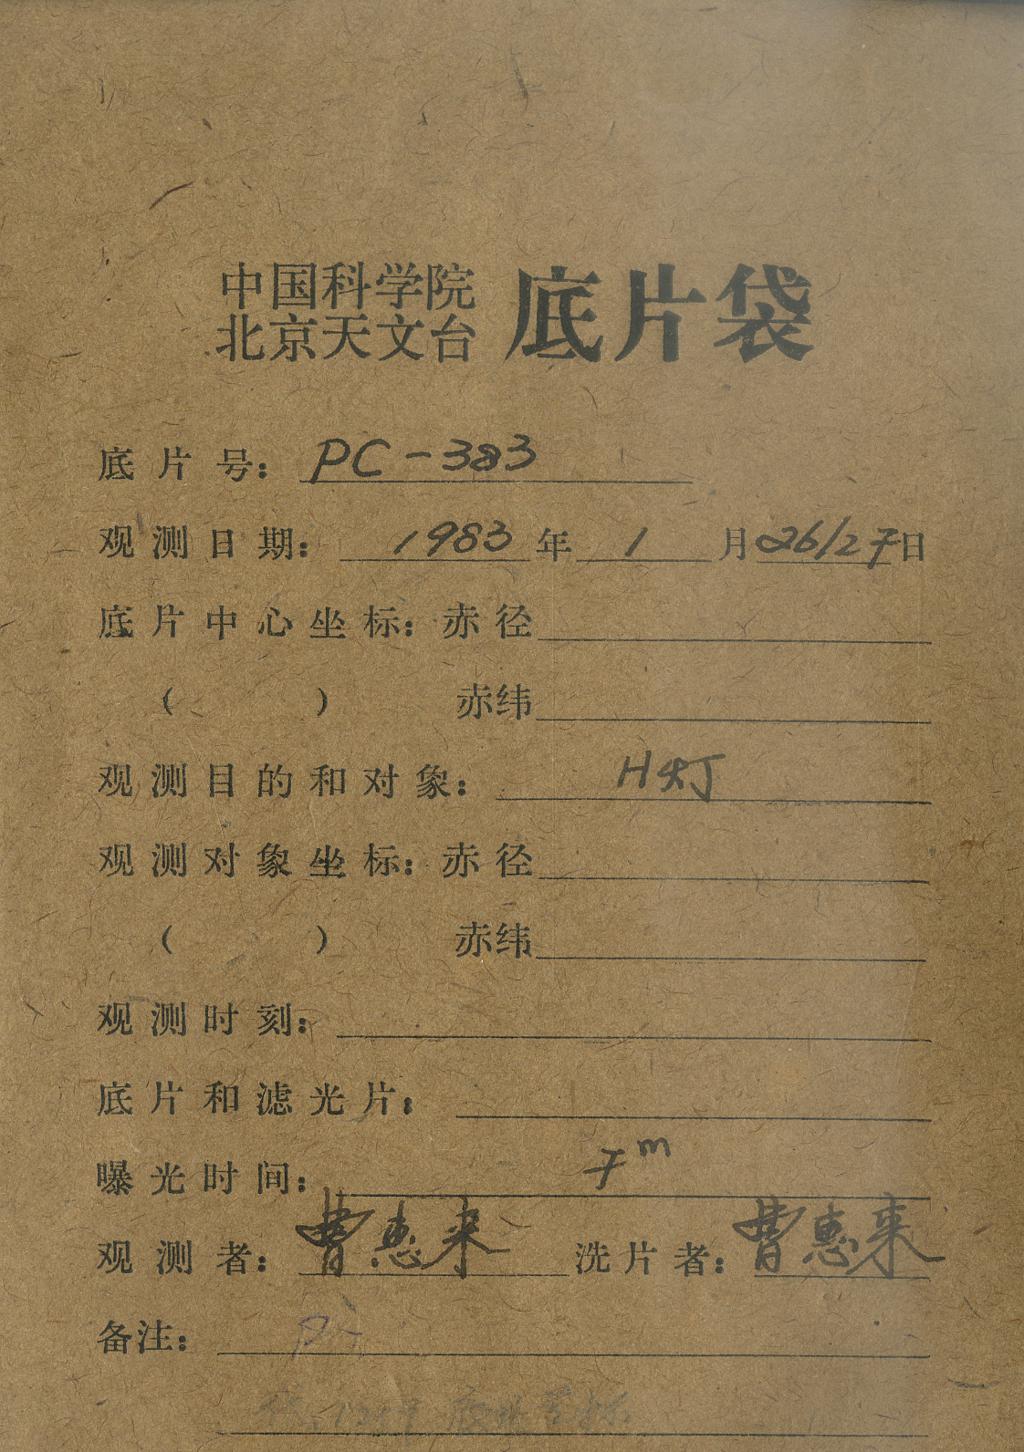 中国科学院
北京天文台
底片袋
底片号: PC-383
观测日期: 1983年1月26/27日
底片中心坐标: 赤径
( ) 赤纬
观测目的和对象: H灯
观测对象坐标: 赤径
( ) 赤纬
观测时刻:
底片和滤光片:
曝光时间: 7m
观测者: 曹惠来 洗片者: 曹惠来
备注: